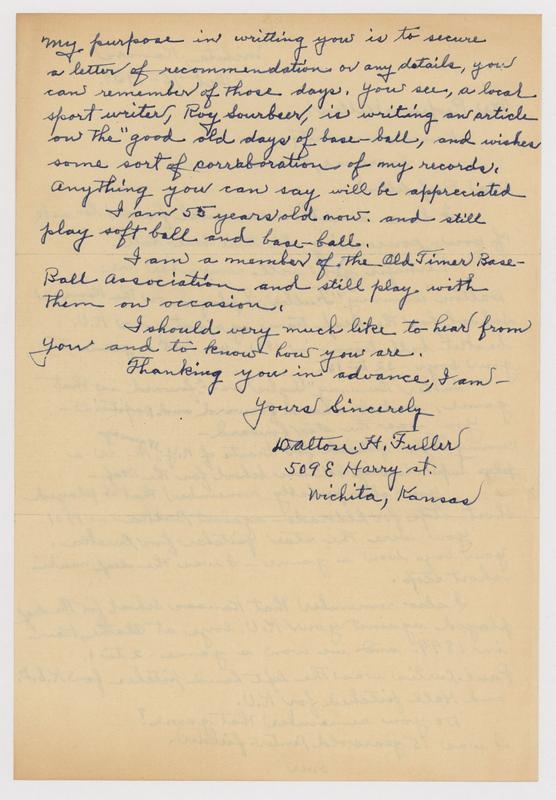 My purpose in writting you is to secure
a letter of recommendation or any details, you
can remember of those days. You see, a local
sport writer, Roy Sourbeer, is writing an article
on the "good old days of base-ball, and wishes
some sort of corraboration of my records.
Anything you can say will be appreciated
I am 55 years old now. and still
play soft ball and base-ball.
I am a member of the Old Timer Base-
Ball Association and still play with
them on occasion.
I should very much like to hear from
you and to know how you are.
Thanking you in advance, I am -
Yours Sincerely
Dalton. H. Fuller
509 E Harry st.
Wichita, Kansas